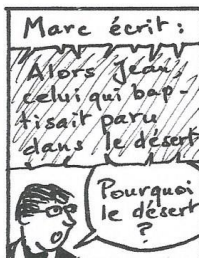 Marc écrit :
Alors Jean,
celui qui bap-
tisait paru
dans le désert
Pourquoi
le désert
?